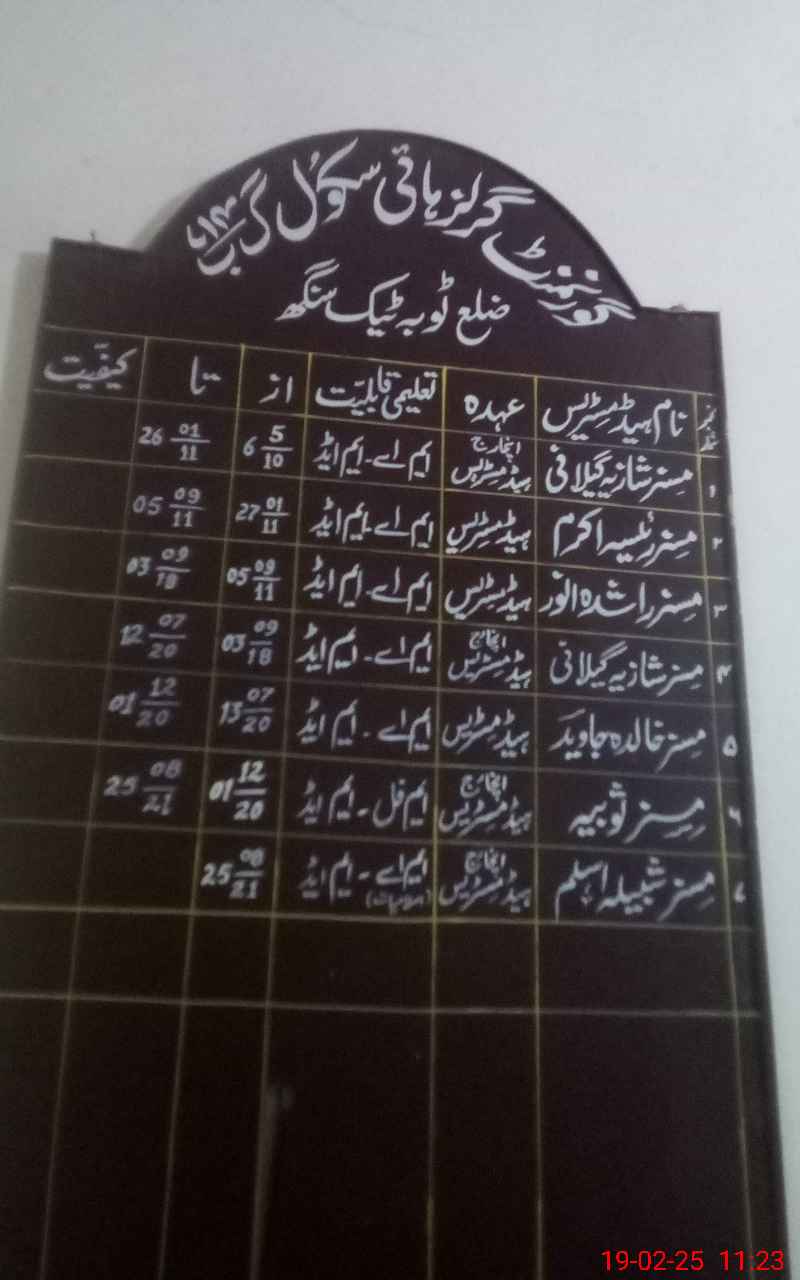 گورنمنٹ گرلز ہائی سکول گ ب
ضلع ٹوبہ ٹیک سنگھ
نمبر شمار نام ہیڈ مسٹریس عہدہ تعلیمی قابلیت از تا کیفیت
۱ مسز شازیہ گیلانی انچارج ہیڈ مسٹریس ایم اے۔ ایم ایڈ 6 5/10 26 01/11
۲ مسز رئیسہ اکرم ہیڈ مسٹریس ایم اے۔ ایم ایڈ 27 01/11 05 09/11
۳ مسز راشدہ انور ہیڈ مسٹریس ایم اے۔ ایم ایڈ 05 09/11 03 09/18
۴ مسز شازیہ گیلانی انچارج ہیڈ مسٹریس ایم اے۔ ایم ایڈ 03 09/18 12 07/20
۵ مسز خالدہ جاوید ہیڈ مسٹریس ایم اے۔ ایم ایڈ 13 07/20 01 12/20
۶ مسز ثوبیہ انچارج ہیڈ مسٹریس ایم فل۔ ایم ایڈ 01 12/20 25 08/21
۷ مسز شبیلہ اسلم انچارج ہیڈ مسٹریس ایم اے۔ ایم ایڈ 25 08/21
19-02-25 11:23